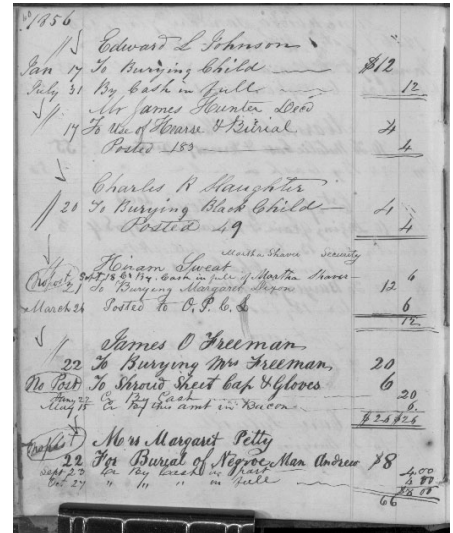 60 1856
Edward L Johnson
Jan 17 To Burying Child $12
July 31 By Cash in full 12
Mr James Hunter Deed
17 To Use of Hearse & Burial 4
Posted 183 4
Charles R Slaughter
20 To Burying Black Child 4
Posted 49 4
Martha Shaver Security
Hiram Sweat
Sept 18 Cr By Cash in full of Martha Shaver 6
21 To Burying Margaret Dixon 12
March 24 Posted to O, P. C. & 6
12
James O Freeman
22 To Burying Mrs Freeman 20
No Post To Shroud Sheet Cap & Gloves 6
Jany 22 Cr By Cash 20
May 15 Cr By this amt in Bacon 6
$26 $26
Mrs Margaret Petty
22 For Burial of Negroe Man Andrew $8
Sept 23 Cr By Cash in part 4.00
Oct 27 " " " in full 4 00
$8 00
66